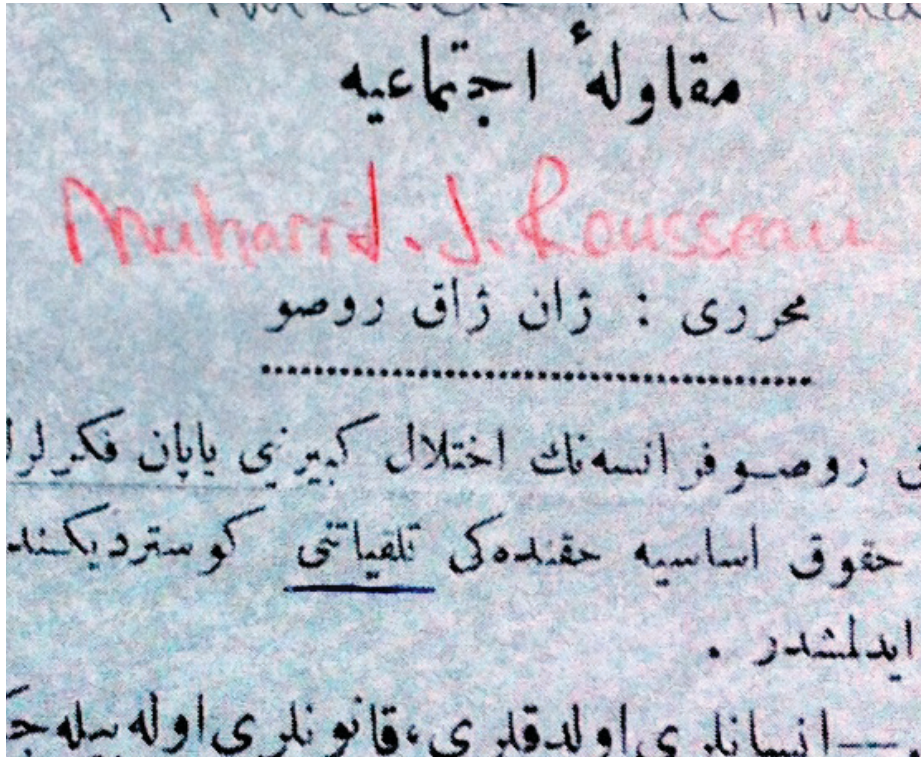 مقاولهٔ اجتماعیه
Muharrid.J.Rousseau
محرری : ژان ژاق روصو
روصو فرانسه‌نك اختلال كبیرنی یاپان فكرلرل
حقوق اساسیه حقنده‌كی تلقیاتنی كوستردیكند
ایدلمشدر .
— انسانلری اولدقلری، قانونلری اوله بیله جك